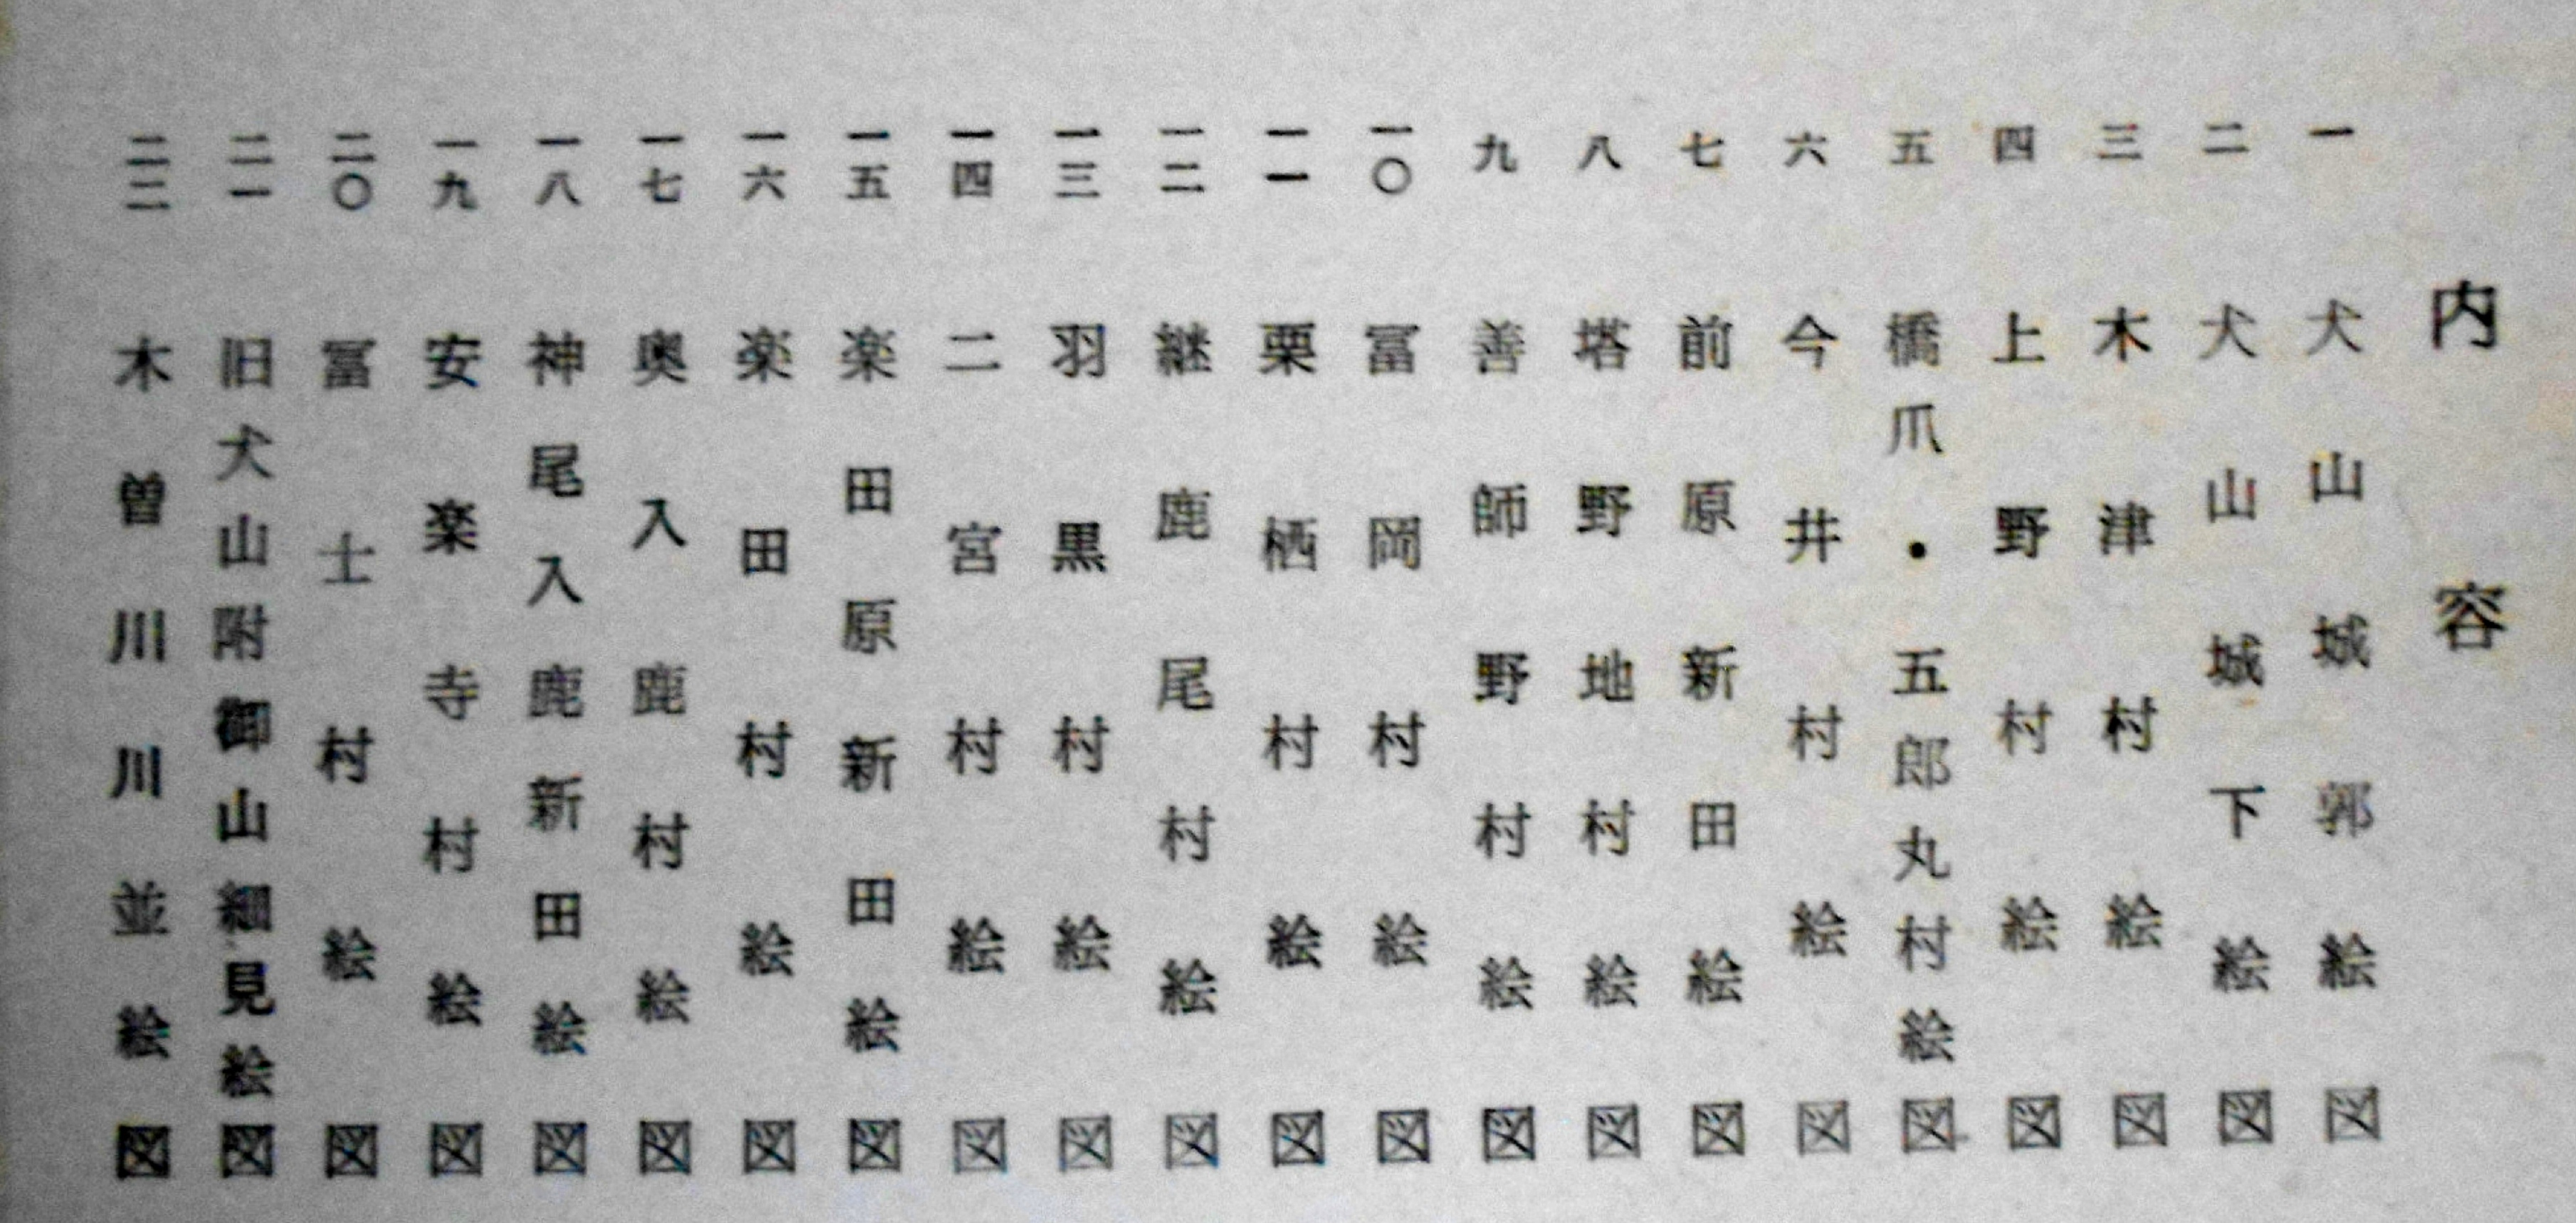 内容
一 犬山城郭絵図
二 犬山城下絵図
三 木津村絵図
四 上野村絵図
五 橋爪・五郎丸村絵図
六 今井村絵図
七 前原新田絵図
八 塔野地村絵図
九 善師野村絵図
一〇 富岡村絵図
一一 栗栖村絵図
一二 継鹿尾村絵図
一三 羽黒村絵図
一四 二宮村絵図
一五 楽田原新田絵図
一六 楽田村絵図
一七 奥入鹿村絵図
一八 神尾入鹿新田絵図
一九 安楽寺村絵図
二〇 冨士村絵図
二一 旧犬山附御山細見絵図
二二 木曽川川並絵図